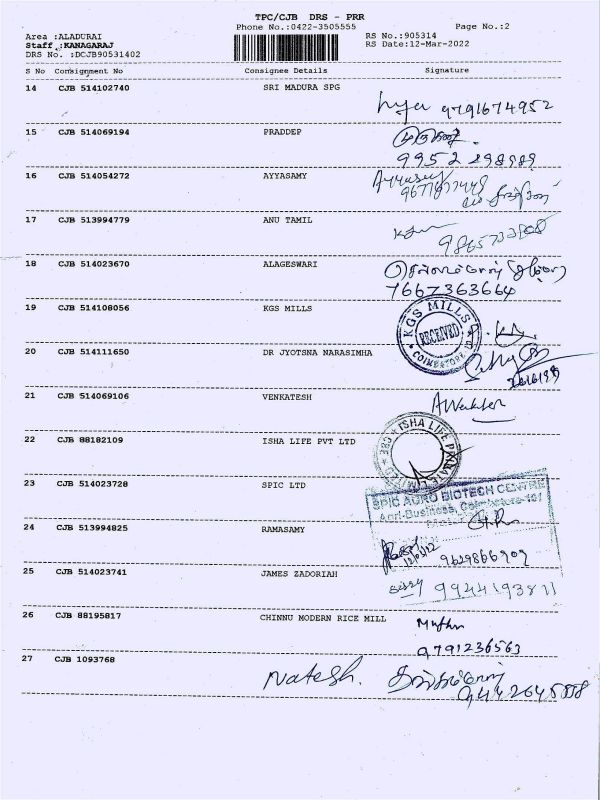 TPC/CJB DRS - PRR
Phone No.:0422-3505555
Page No.:2
Area :ALADURAI
RS No.:905314
Staff :KANAGARAJ
RS Date:12-Mar-2022
DRS No. :DCJB90531402
S No Consignment No Consignee Details Signature
14 CJB 514102740 SRI MADURA SPG
9791674952
15 CJB 514069194 PRADDEP
9952 298989
16 CJB 514054272 AYYASAMY
Ayyasamy
17 CJB 513994779 ANU TAMIL
18 CJB 514023670 ALAGESWARI
7667363664
19 CJB 514108056 KGS MILLS
KGS MILLS
RECEIVED
COIMBATORE
20 CJB 514111650 DR JYOTSNA NARASIMHA
21 CJB 514069106 VENKATESH
22 CJB 88182109 ISHA LIFE PVT LTD
ISHA LIFE PRIVATE
23 CJB 514023728 SPIC LTD
SPIC AGRO BIOTECH CENTRE
Agri-Business, Coimbatore-101
24 CJB 513994825 RAMASAMY
9629866909
25 CJB 514023741 JAMES ZADORIAH
9944193811
26 CJB 88195817 CHINNU MODERN RICE MILL
9791236563
27 CJB 1093768
Natesh.